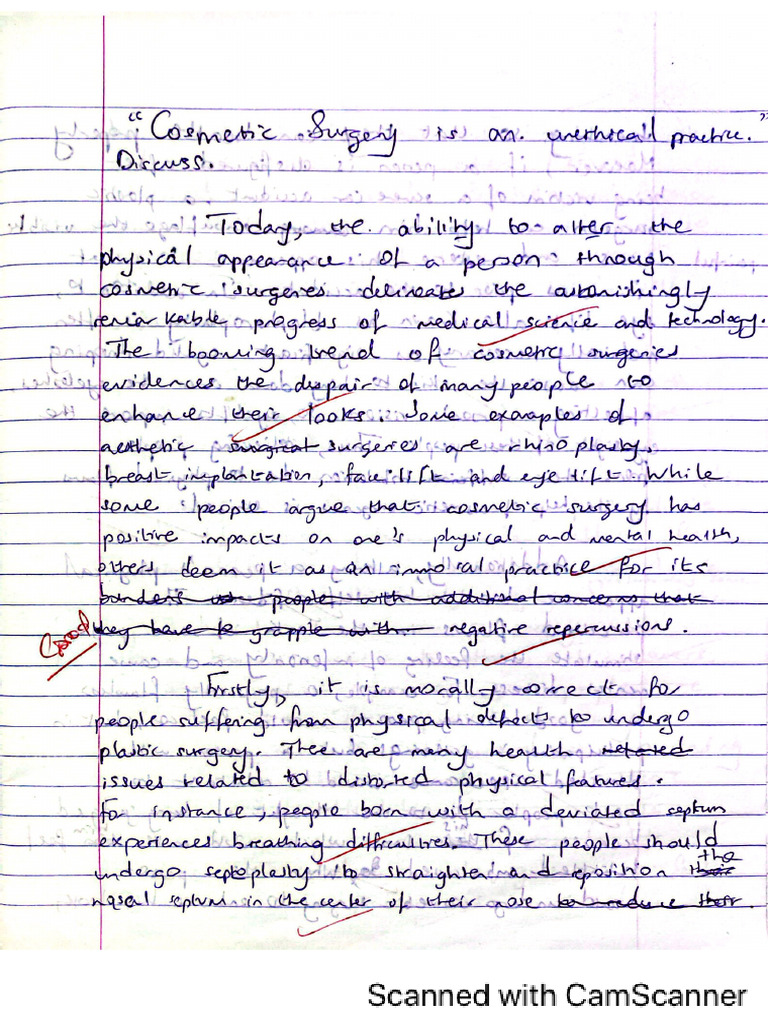 "Cosmetic Surgery is an unethical practice."
Discuss.
Today, the ability to alter the
physical appearance of a person through
cosmetic surgeries delineates the astonishingly
remarkable progress of medical science and technology.
The booming trend of cosmetic surgeries
evidences the despair of many people to
enhance their looks. Some examples of
aesthetic surgical surgeries are rhinoplasty,
breast implantation, face lift and eye lift. While
some people argue that cosmetic surgery has
positive impacts on one's physical and mental health,
others deem it as an immoral practice for its
burdens people with additional concerns that
they have to grapple with. negative repercussions.
Good
Firstly, it is morally correct for
people suffering from physical defects to undergo
plastic surgery. Thee are many health related
issues related to distorted physical features.
For instance, people born with a deviated septum
experiences breathing difficulties. These people should
undergo septoplasty to straighten and reposition their the
nasal septum in the center of their nose to reduce their.
Scanned with CamScanner